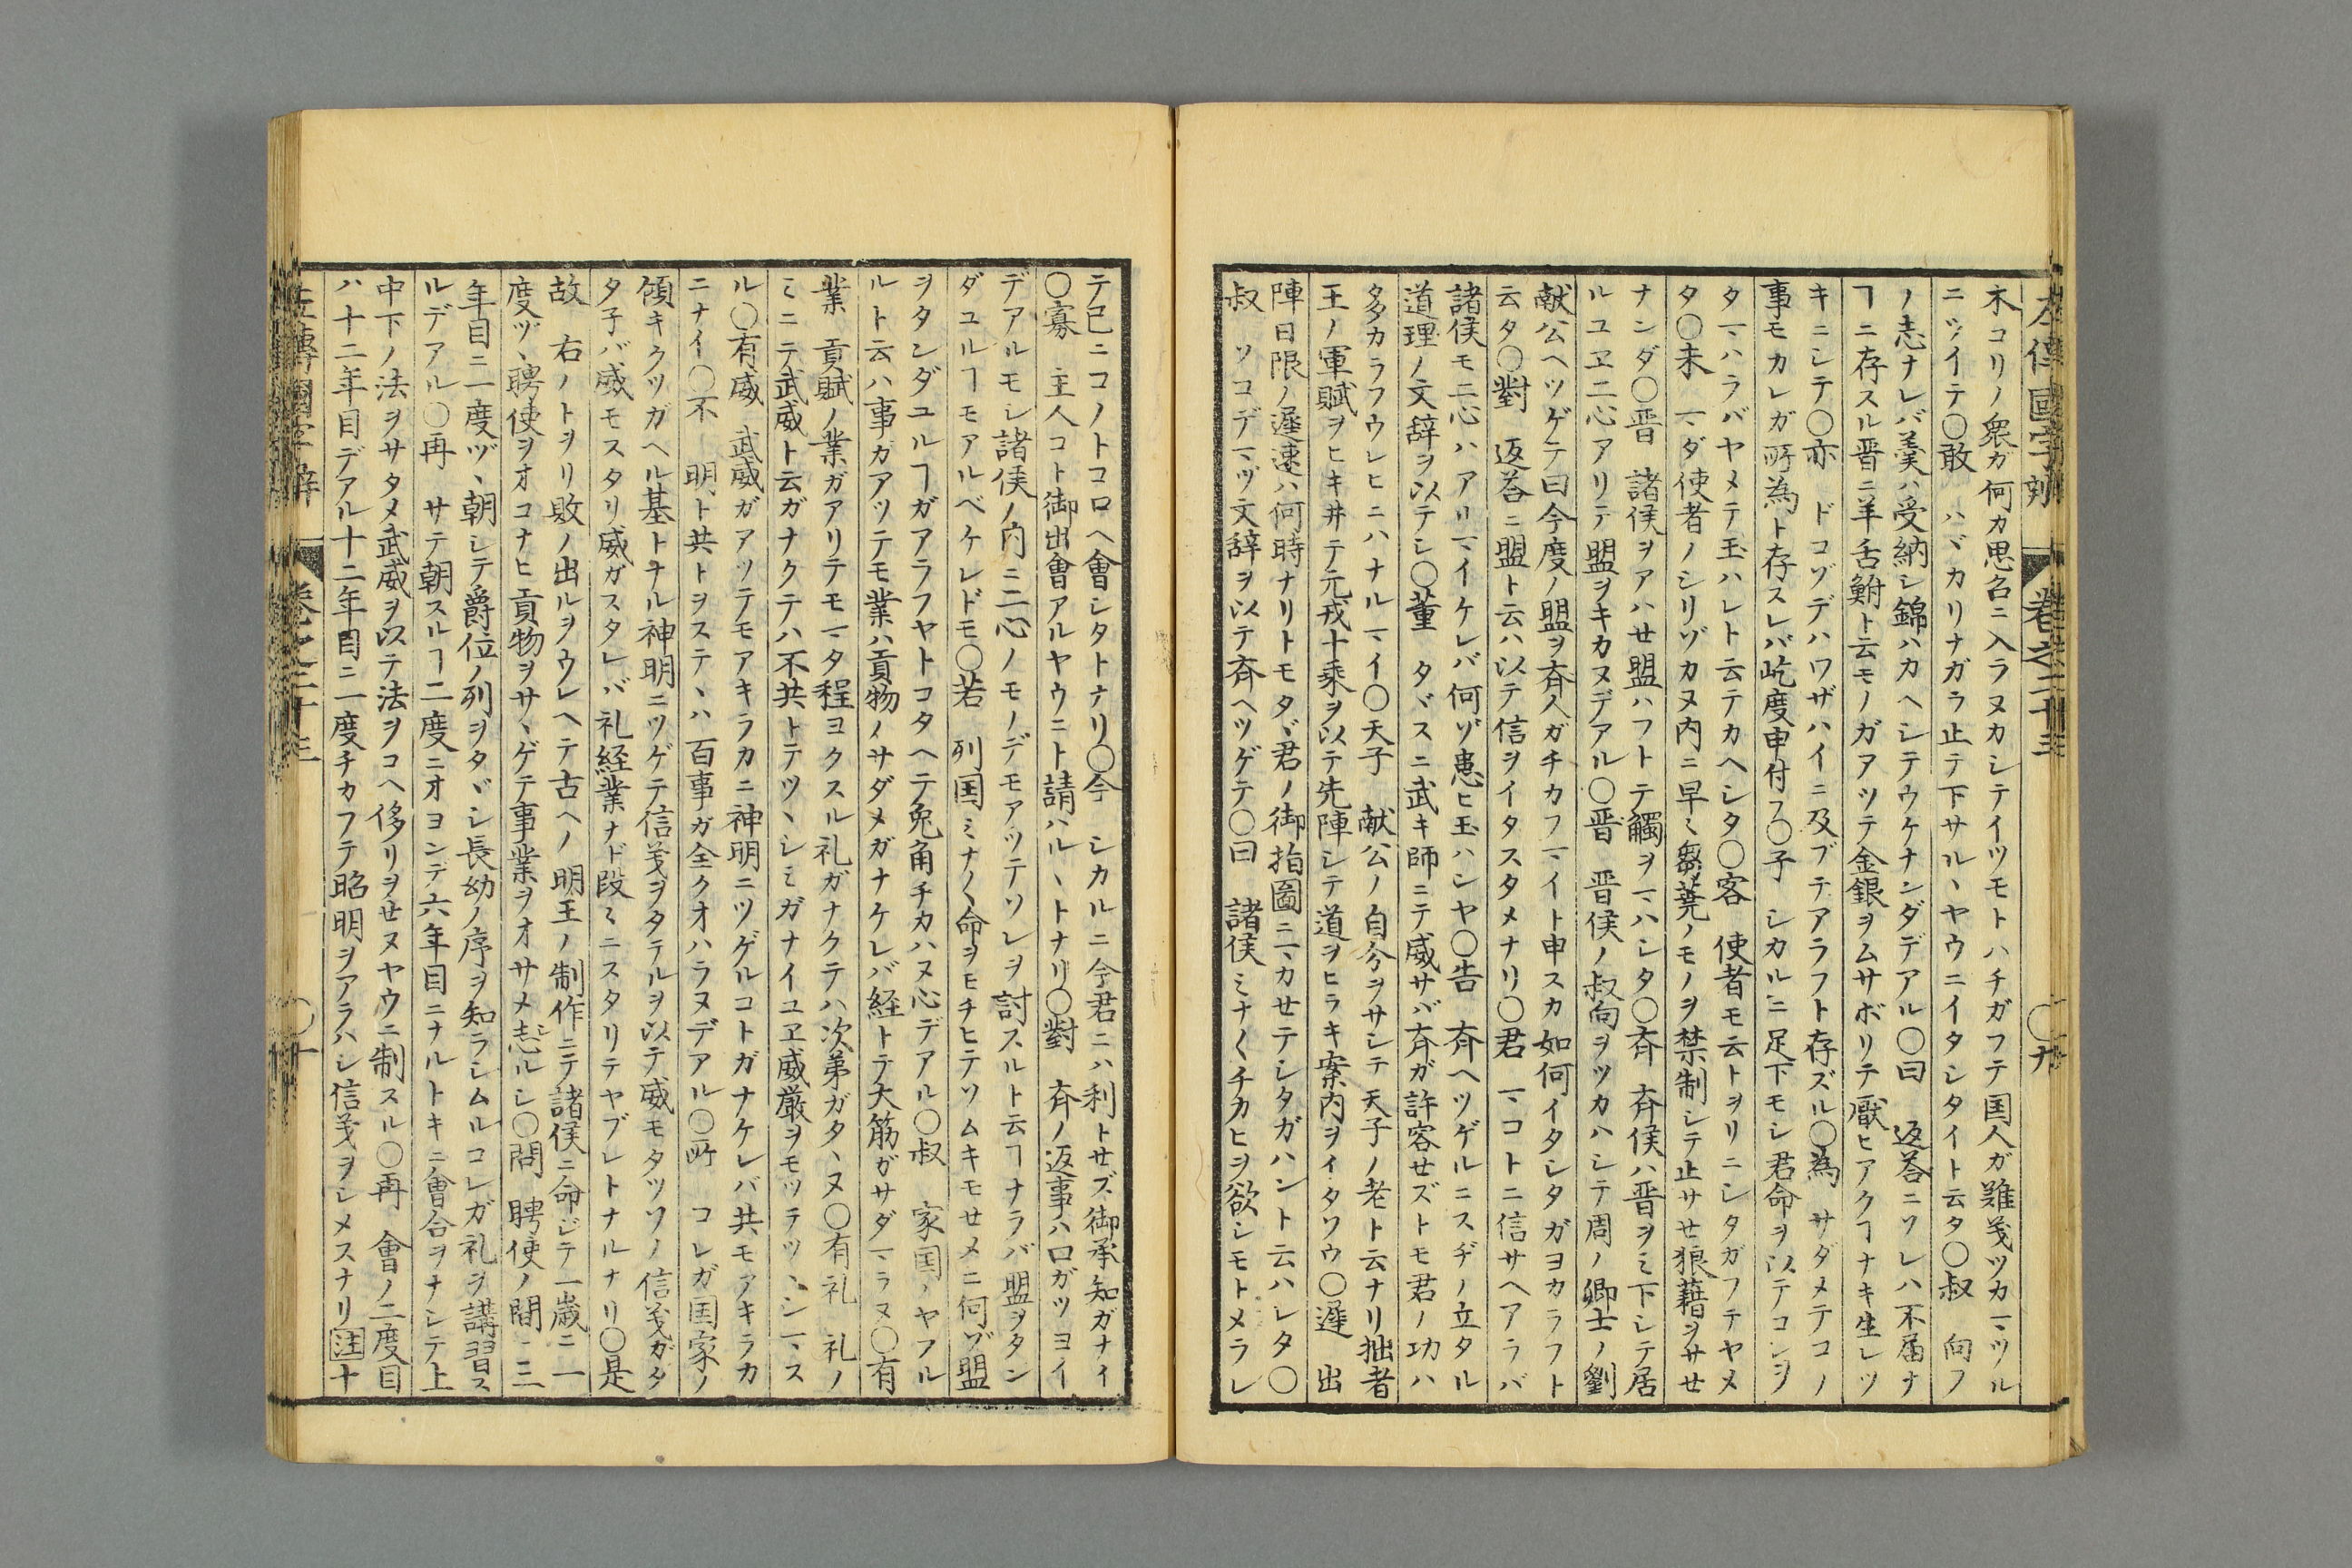 左傳國字辨 巻之二十三 〇九
木コリノ衆ガ何カ思召ニ入ラヌカシテイツモトハチガフテ国人ガ難義ツカマツル
ニツイテ〇敢 ハヾカリナガラ止テ下サルヽヤウニイタシタイト云タ〇叔 向フ
ノ志ナレバ羹ハ受納シ錦ハカヘシテウケナンダデアル〇曰 返荅ニソレハ不届ナ
ヿニ存スル晋ニ羊舌鮒ト云モノガアツテ金銀ヲムサボリテ厭ヒアクヿナキ生レツ
キニシテ〇亦 ドコゾデハワザハイニ及ブテアラフト存ズル〇為 サダメテコノ
事モカレガ所為ト存スレバ屹度申付フ〇子 シカルニ足下モシ君命ヲ以テコレヲ
タマハラバヤメテ玉ハレト云テカヘシタ〇客 使者モ云トヲリニシタガフテヤメ
タ〇未 マダ使者ノシリゾカヌ内ニ早ミ芻蕘ノモノヲ禁制シテ止サせ狼藉ヲサせ
ナンダ〇晋 諸侯ヲアハせ盟ハフトテ觸ヲマハシタ〇斉 斉侯ハ晋ヲミ下シテ居
ルユヱ二心アリテ盟ヲキカヌデアル〇晋 晋侯ノ叔向ヲツカハシテ周ノ卿士ノ劉
献公ヘツゲテ曰今度ノ盟ヲ斉人ガチカフマイト申スカ如何イタシタガヨカラフト
云タ〇對 返荅ニ盟ト云ハ以テ信ヲイタスタメナリ〇君 マコトニ信サヘアラバ
諸侯モ二心ハアリマイケレバ何ゾ患ヒ玉ハンヤ〇告 斉ヘツゲルニスヂノ立タル
道理ノ文辞ヲ以テシ〇董 タヾスニ武キ師ニテ威サバ斉ガ許容せズトモ君ノ功ハ
多カラフウレヒニハナルマイ〇天子 献公ノ自分ヲサシテ天子ノ老ト云ナリ拙者
王ノ軍賦ヲヒキ井テ元戎十乗ヲ以テ先陣シテ道ヲヒラキ案内ヲイタソウ〇遲 出
陣日限ノ遲速ハ何時ナリトモタヾ君ノ御指圖ニマカせテシタガハント云ハレタ〇
叔 ソコデマヅ文辞ヲ以テ斉ヘツゲテ〇曰 諸侯ミナ〱チカヒヲ欲シモトメラレ
テ已ニコノトコロヘ會シタトナリ〇今 シカルニ今君ニハ利トせズ御承知ガナイ
〇寡 主人コト御出會アルヤウニト請ハルヽトナリ〇對 斉ノ返事ハ口ガツヨイ
デアルモシ諸侯ノ内ニ二心ノモノデモアツテソレヲ討スルト云ヿナラバ盟ヲタン
ダユルヿモアルベケレドモ〇若 列国ミナ〱命ヲモチヒテソムキモせメニ何ゾ盟
ヲタンダユルヿガアラフヤトコタヘテ兎角チカハヌ心デアル〇叔 家国ノヤフル
ルト云ハ事ガアツテモ業ハ貢物ノサダメガナケレバ経トテ大筋ガサダマラヌ〇有
業 貢賦ノ業ガアリテモマタ程ヨクスル礼ガナクテハ次第ガタヽヌ〇有礼 礼ノ
ミニテ武威ト云ガナクテハ不共トテツヽシミガナイユヱ威厳ヲモツテツヽシマス
ル〇有威 武威ガアツテモアキラカニ神明ニツゲルコトガナケレバ共モアキラカ
ニナイ〇不 明ト共トヲステヽハ百事ガ全クオハラヌデアル〇所 コレガ国家ノ
傾キクツガヘル基トナル神明ニツゲテ信義ヲタテルヲ以テ威モタツソノ信義ガタ
タ子バ威モスタリ威ガスタレバ礼経業ナド段ミニスタリテヤブレトナルナリ〇是
故 右ノトヲリ敗ノ出ルヲウレヘテ古ヘノ明王ノ制作ニテ諸侯ニ命ジテ一歳ニ一
度ヅヽ聘使ヲオコナヒ貢物ヲサヽゲテ事業ヲオサメ志ルシ〇間 聘使ノ間ニ三
年目ニ一度ヅヽ朝シテ爵位ノ列ヲタヾシ長幼ノ序ヲ知ラシムルコレガ礼ヲ講習ス
ルデアル〇再 サテ朝スルヿ二度ニオヨンデ六年目ニナルトキニ會合ヲナシテ上
中下ノ法ヲサタメ武威ヲ以テ法ヲコヘ侈リヲせヌヤウニ制スル〇再 會ノ二度目
ハ十二年目デアル十二年目ニ一度チカフテ昭明ヲアラハシ信義ヲシメスナリ注十
左傳國字辨 巻之二十三 〇十